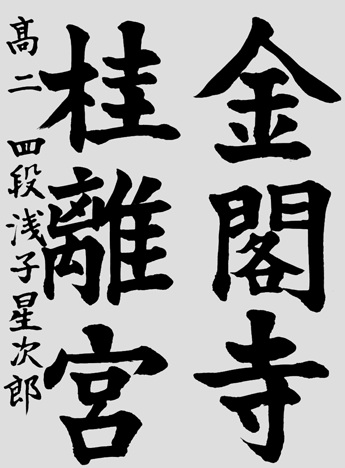 金閣寺
桂離宮
髙二 四段 浅子星次郎